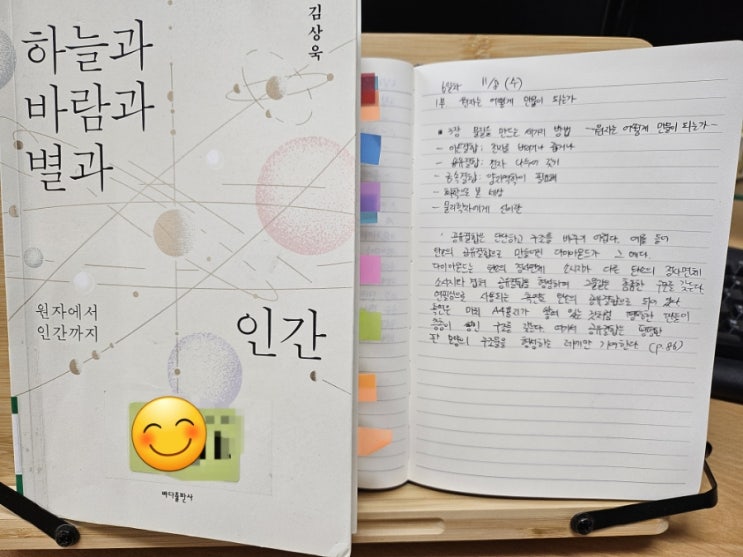 김상욱
하늘과
바람과
별과
인간
원자에서
인간까지
바다출판사
6일차 11/8 (수)
1부. 원자는 어떻게 만물이 되는가
3장 물질을 만드는 세가지 방법 -원자는 어떻게 만물이 되는가-
- 이온결합: 전자를 버리거나 줍거나
- 공유결합: 전자 나누어 갖기
- 금속결합: 양자역학이 필요해
- 화학으로 본 세상
- 물리학자에게 신이란
공유결합은 단단하고 구조를 바꾸기 어렵다. 예를 들어
탄소의 공유결합으로 만들어진 다이아몬드가 그 예다.
다이아몬드는 탄소의 정사면체 꼭지점이 다른 탄소의 정사면체
공유결합을 형성하며 그물같은 촘촘한 구조를 갖는다.
연필심으로 사용되는 흑연도 탄소의 공유결합으로 되어 있다.
흑연은 마치 A4용지가 쌓여 있는 것처럼 평평한 면들이
층층이 쌓인 구조를 갖는다. 여기서 공유결합은 평평한
판 모양의 구조물을 형성하는 데까지만 기여한다. (p.86)